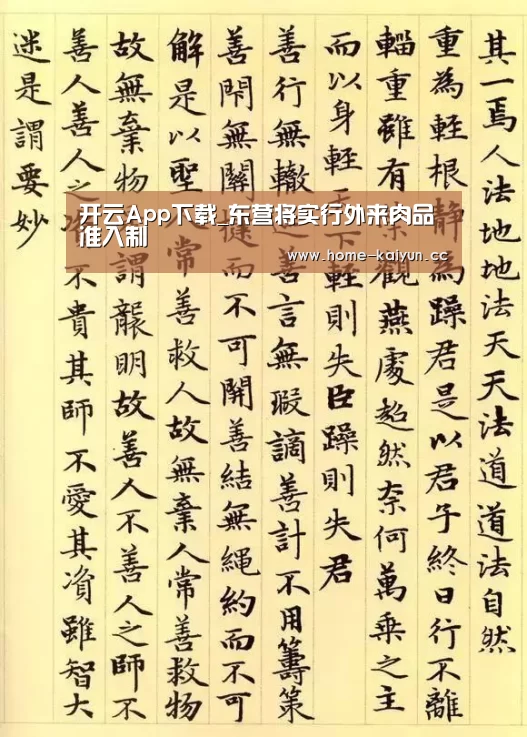 其一焉人法地地法天天法道道法自然
重為輕根靜為躁君是以君子終日行不離
輜重雖有觀燕處超然奈何萬乘之主
而以身輕天下輕則失臣躁則失君
善行無轍迹善言無瑕謫善計不用籌策
善閇無關楗而不可開善結無繩約而不可
解是以聖人常善救人故無棄人常善救物
故無棄物謂襲明故善人不善人之師不
善人善人之資不貴其師不愛其資雖智大
迷是謂要妙
开云App下载_东营将实行外来肉品
准入制
www.home-kaiyun.cc